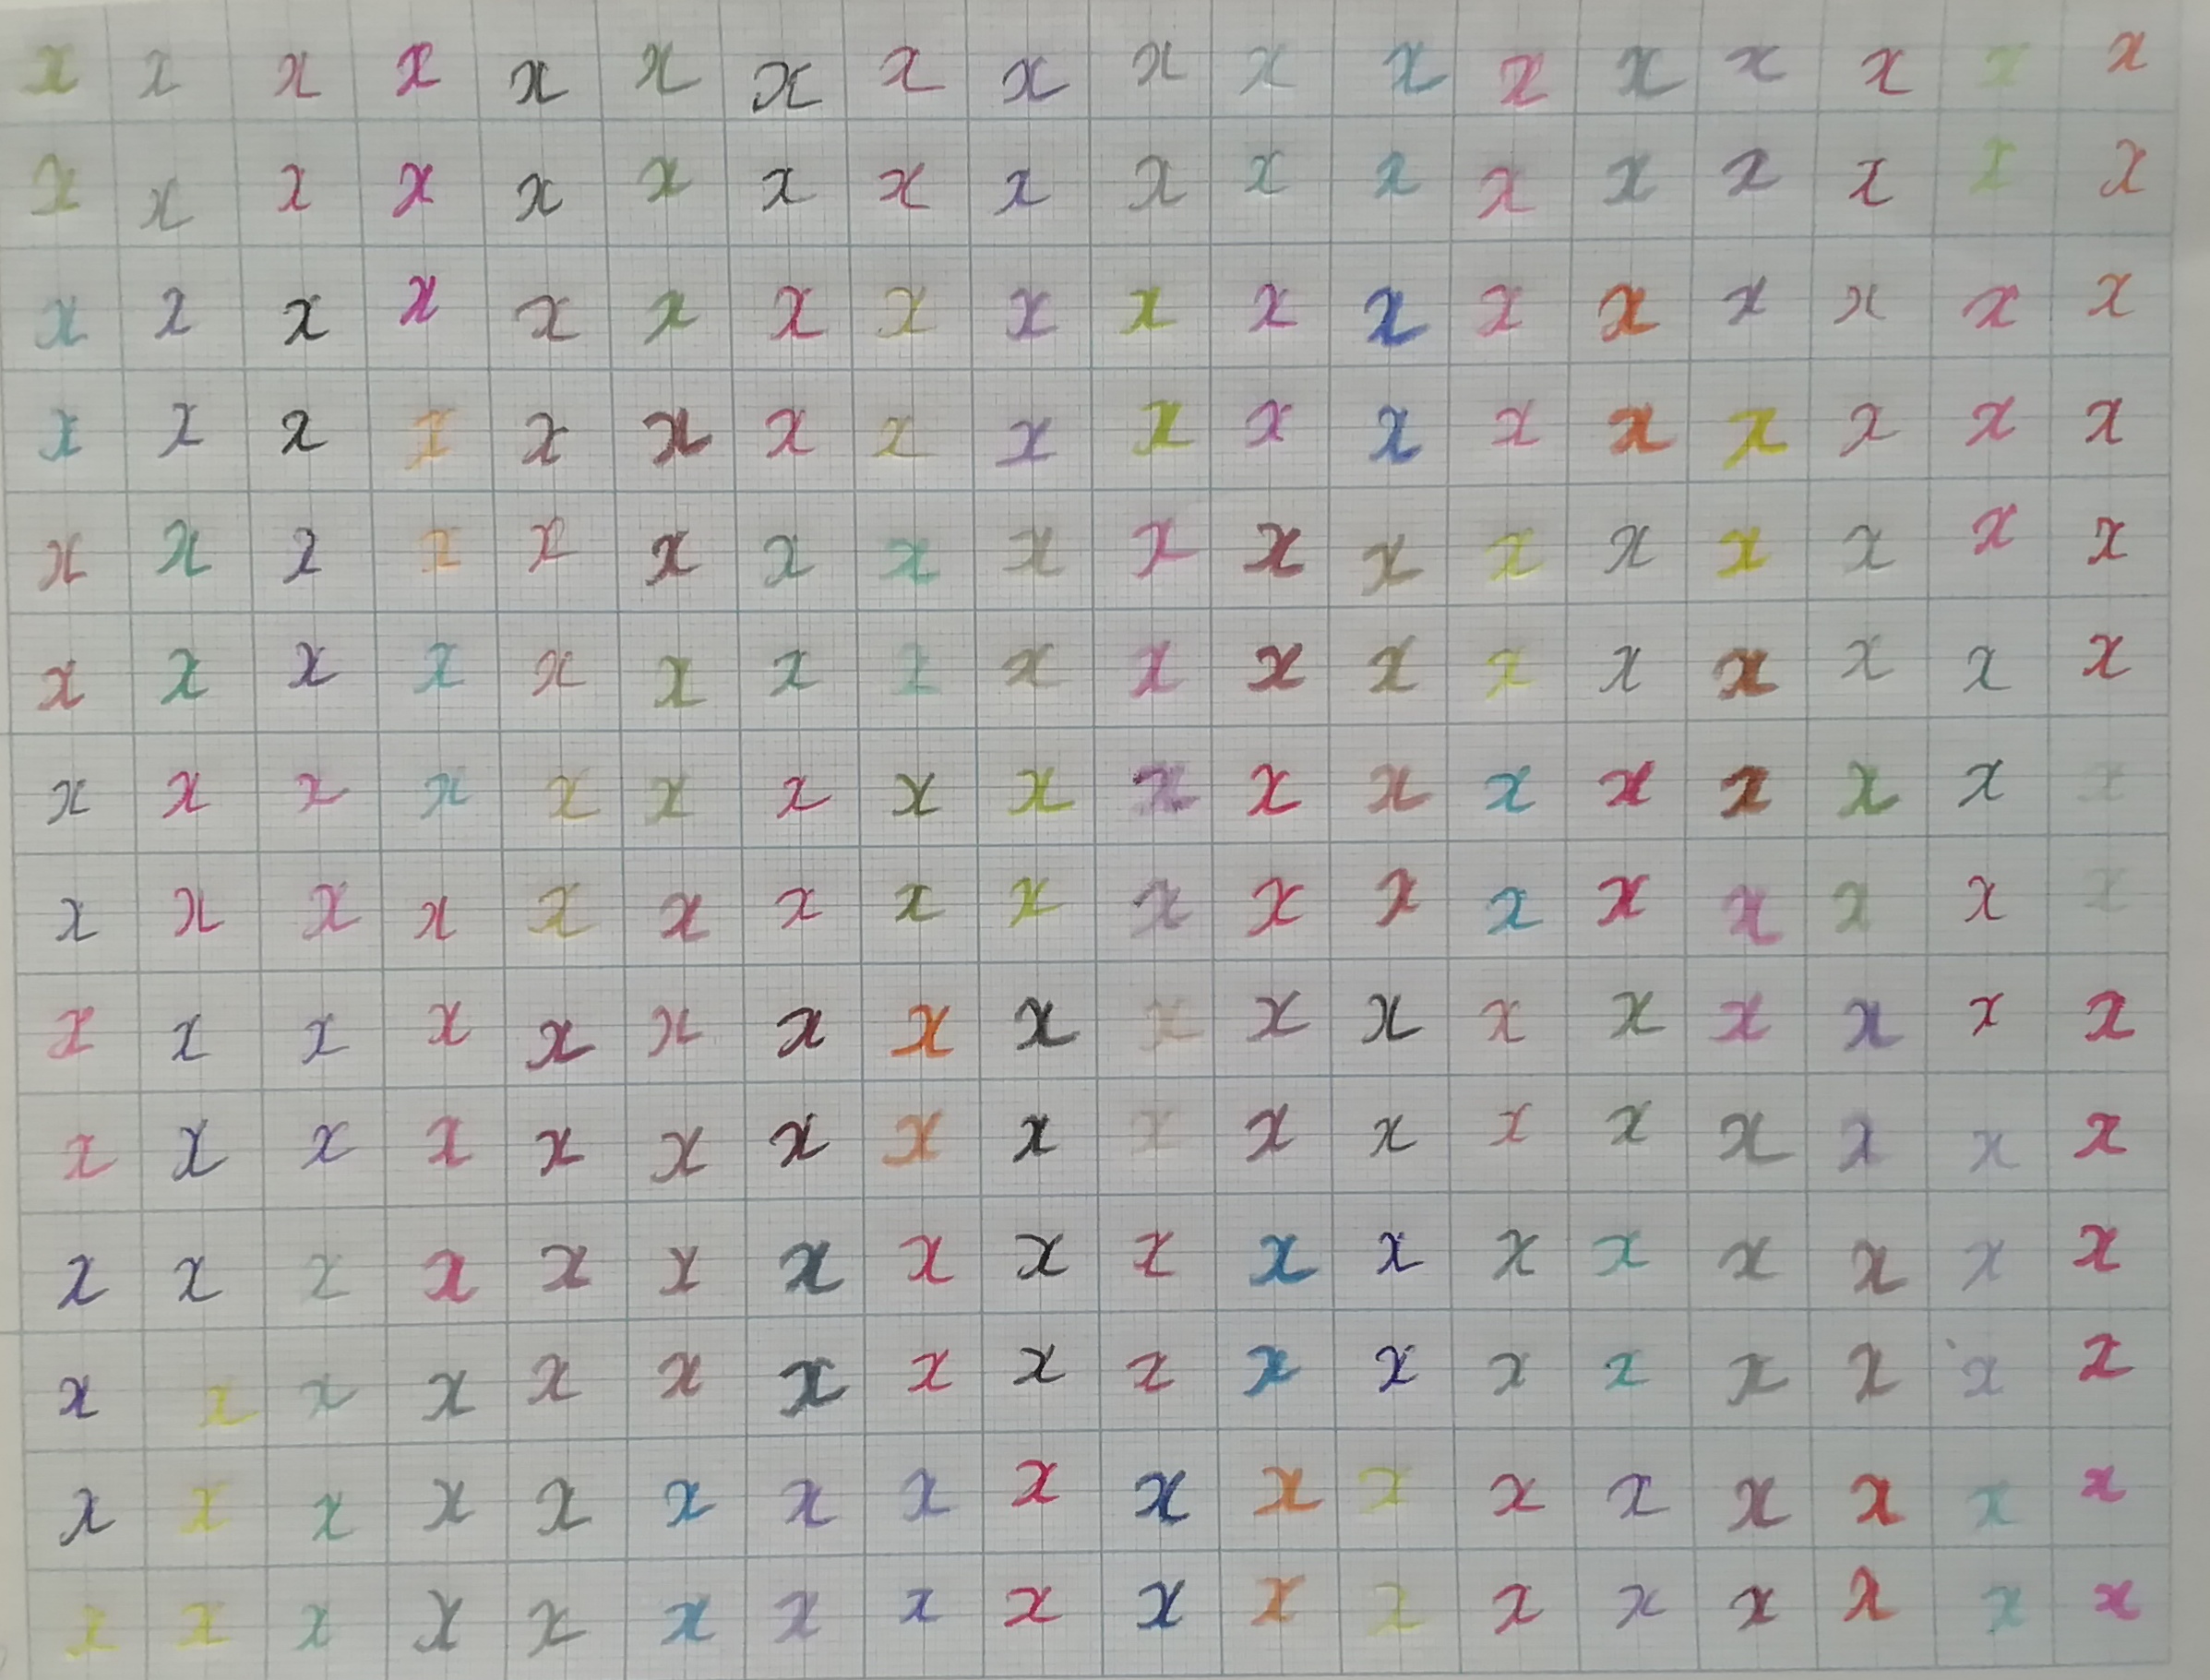 x x x x x x x x x x x x x x x x x x
x x x x x x x x x x x x x x x x x x
x x x x x x x x x x x x x x x x x x
x x x x x x x x x x x x x x x x x x
x x x x x x x x x x x x x x x x x x
x x x x x x x x x x x x x x x x x x
x x x x x x x x x x x x x x x x x x
x x x x x x x x x x x x x x x x x x
x x x x x x x x x x x x x x x x x x
x x x x x x x x x x x x x x x x x x
x x x x x x x x x x x x x x x x x x
x x x x x x x x x x x x x x x x x x
x x x x x x x x x x x x x x x x x x
x x x x x x x x x x x x x x x x x x